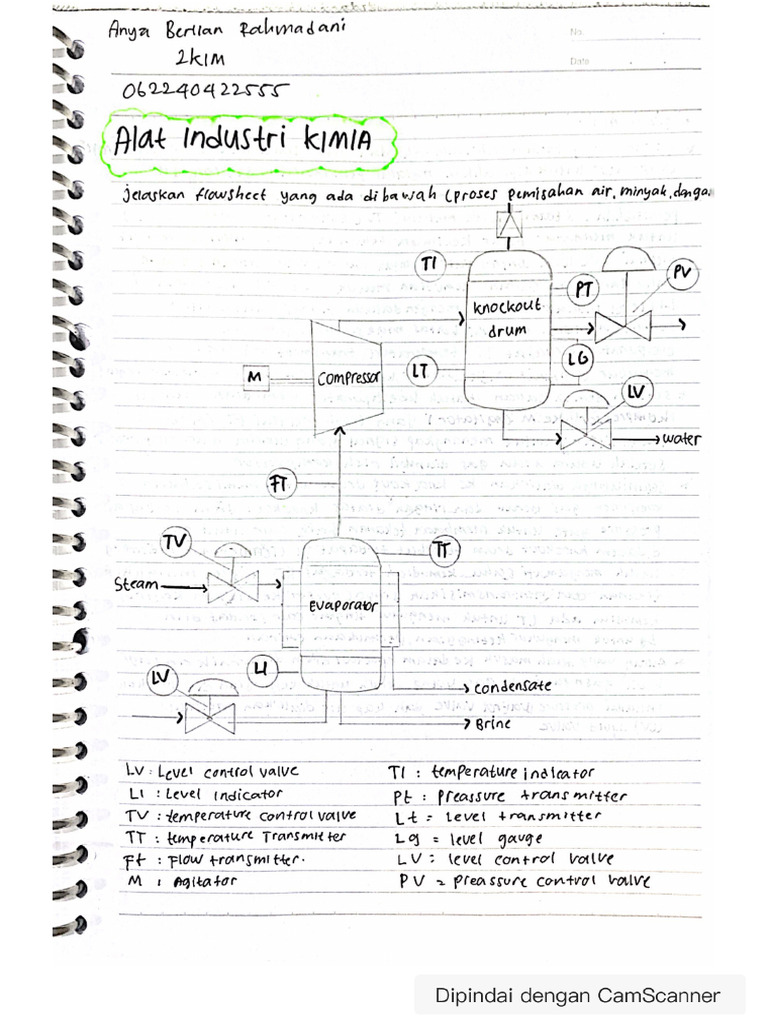 Anya Berlian Rahmadani
No.
2KIM
Date
062240422555
Alat Industri KIMIA
Jelaskan flowsheet yang ada dibawah (proses pemisahan air, minyak, dengan
TI
PV
PT
knockout
drum
M
Compressor
LT
LG
LV
water
FT
TV
TT
Steam
Evaporator
LV
LI
Condensate
Brine
LV : Level control valve
LI : Level Indicator
TV : temperature control valve
TT : temperature Transmitter
Ft : Flow transmitter.
M : Agitator
TI : temperature indicator
Pt : preassure transmitter
Lt = level transmitter
Lg = level gauge
LV : level control valve
PV = preassure control valve
Dipindai dengan CamScanner